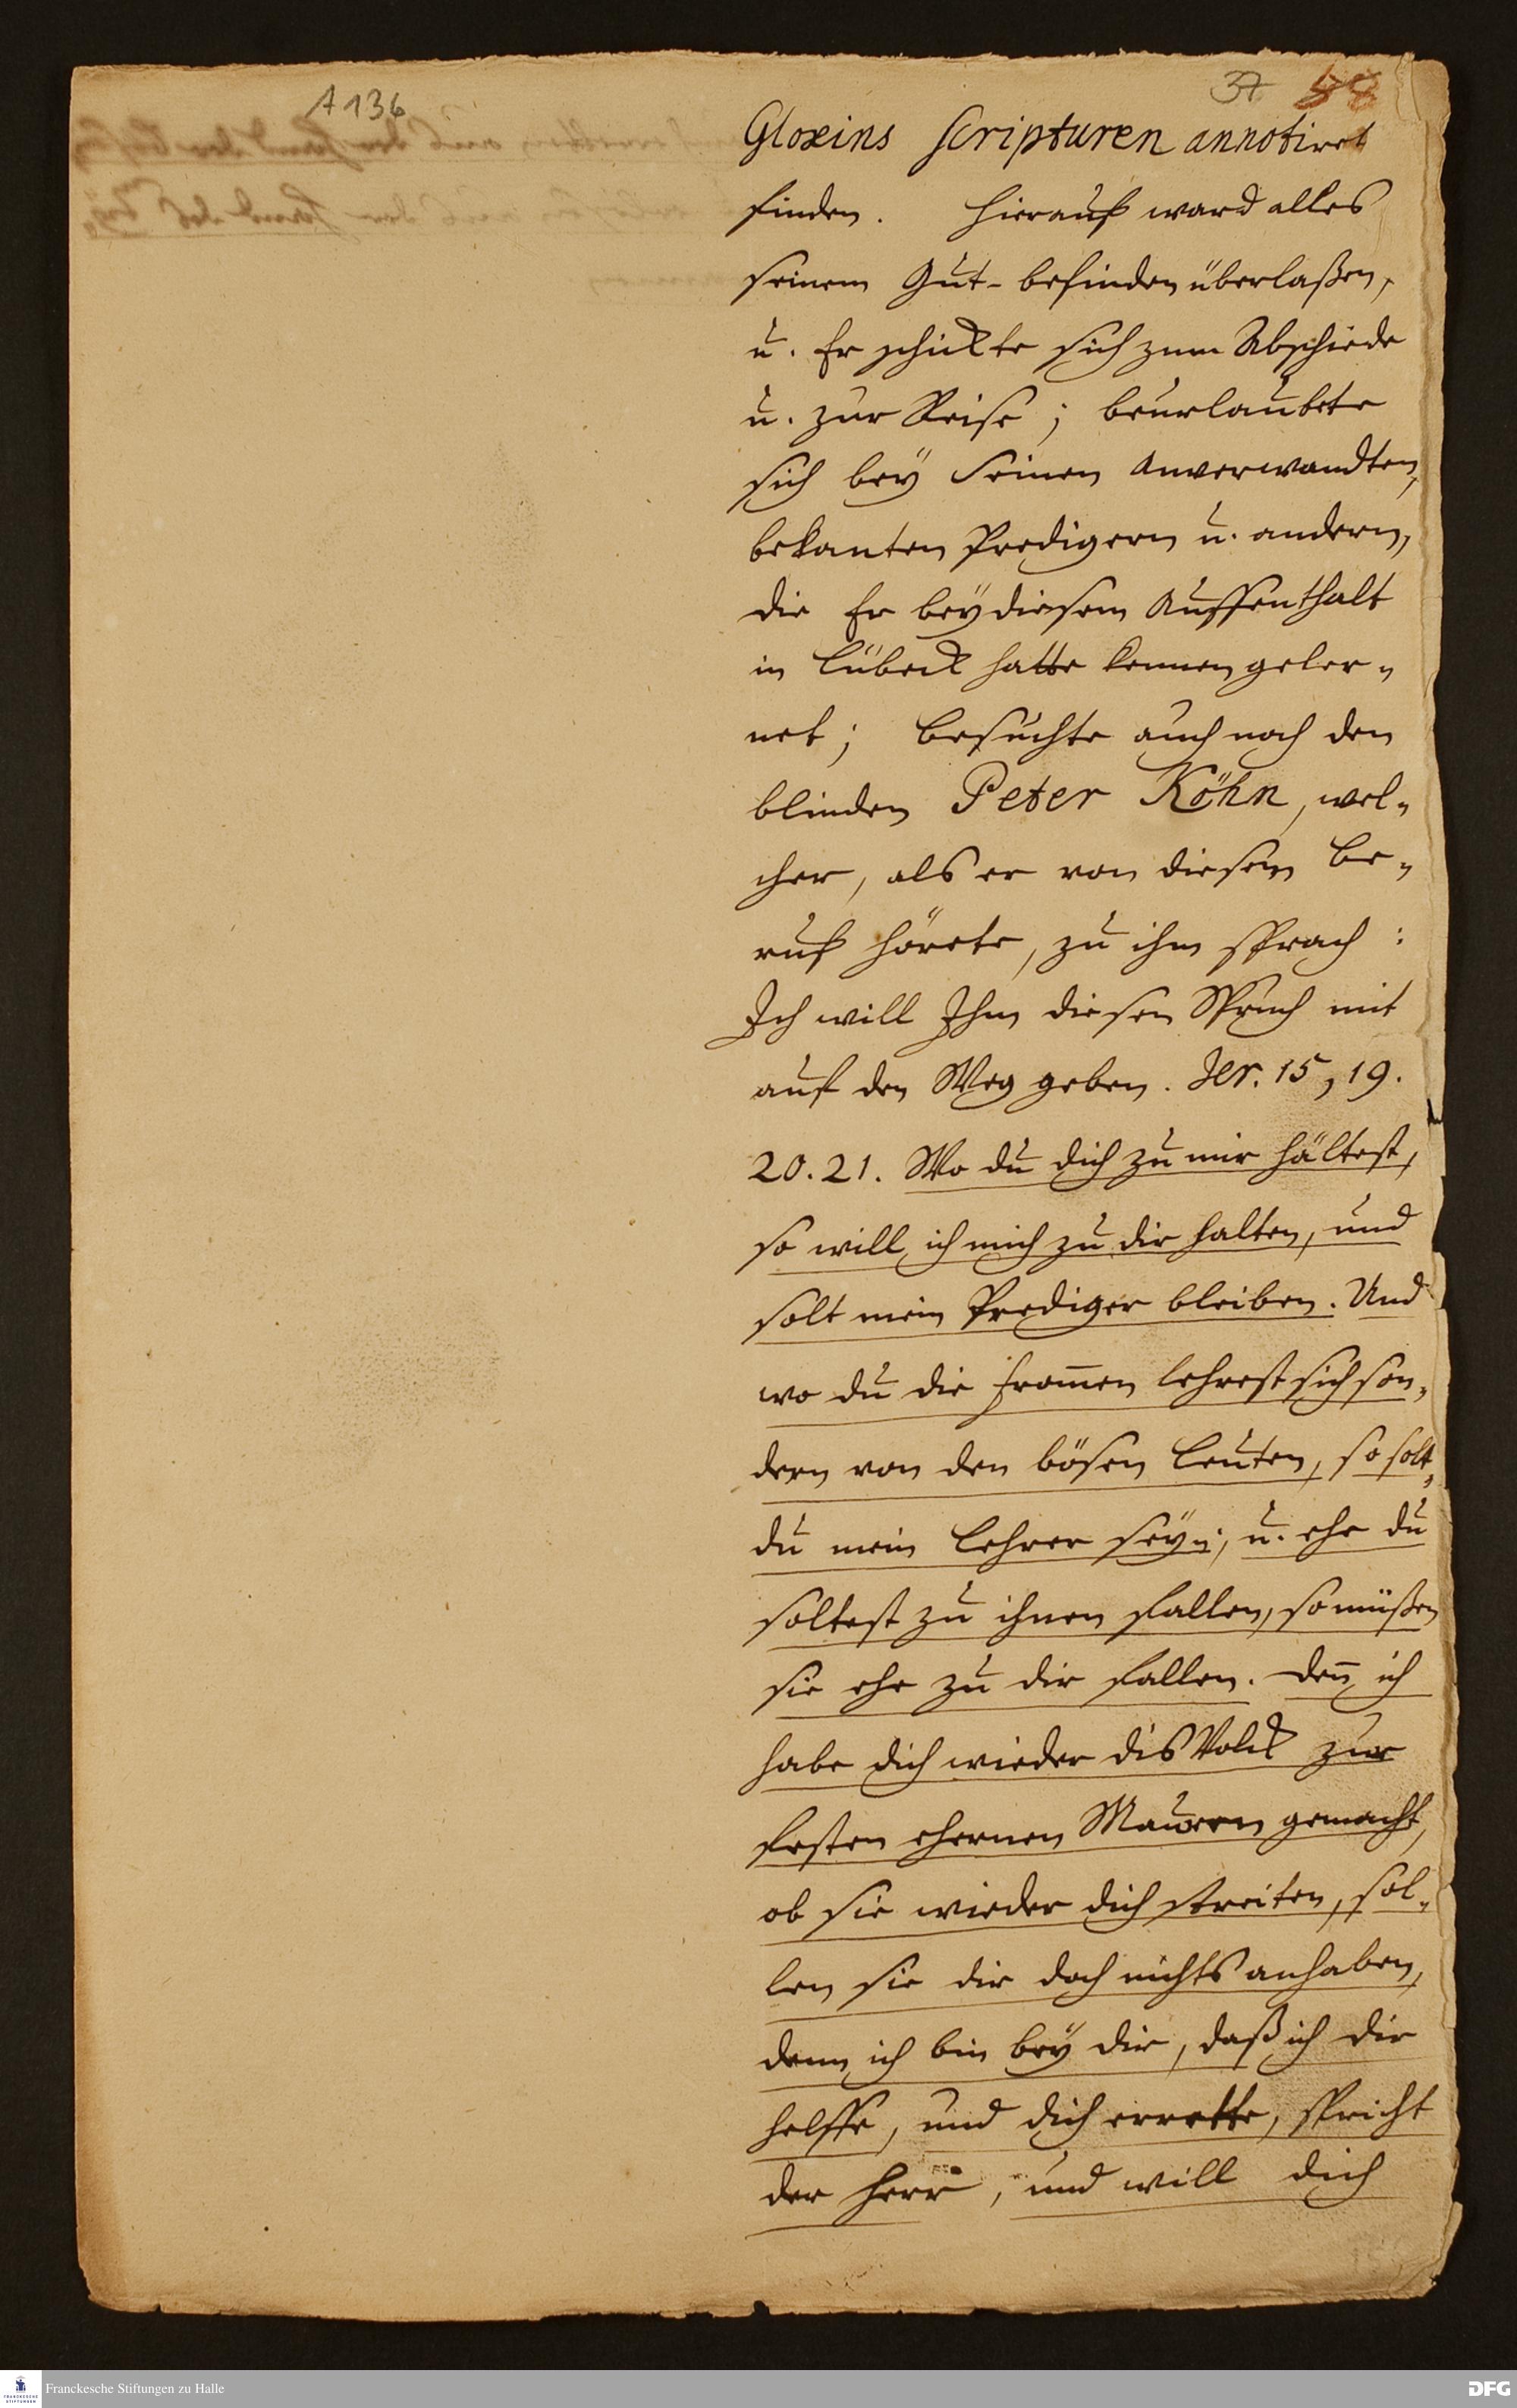 A 136
37 58
Gloxins scripturen annotiret
finden. Hierauf ward alles
seinem Gut-befinden überlaßen,
u. Er schickte sich zum Abschiede
u. zur Reise; beurlaubete
sich bey Seinen Anverwandten,
bekanten Predigern u. andern,
die Er bey diesem Auffenthalt
in Lübeck hatte kennen geler-
net; besuchte auch noch den
blinden Peter Köhn, wel-
cher, als er von diesem Be-
ruf hörete, zu ihm sprach:
Ich will Ihm diesen Spruch mit
auf den Weg geben. Jer. 15, 19.
20. 21. Wo du dich zu mir hältest,
so will ich mich zu dir halten, und
solt mein Prediger bleiben. Und
wo du die Frommen lehrest sich son-
dern von den bösen Leuten, so solt
du mein Lehrer seyn; u. ehe du
soltest zu ihnen fallen, so müßen
sie ehe zu dir fallen. Denn ich
habe dich wieder dis Volck zur
festen ehernen Mauren gemacht,
ob sie wieder dich streiten, sol-
len sie dir doch nichts anhaben,
denn ich bin bey dir, daß ich dir
helffe, und dich errette, spricht
der Herr, und will dich
Franckesche Stiftungen zu Halle
DFG